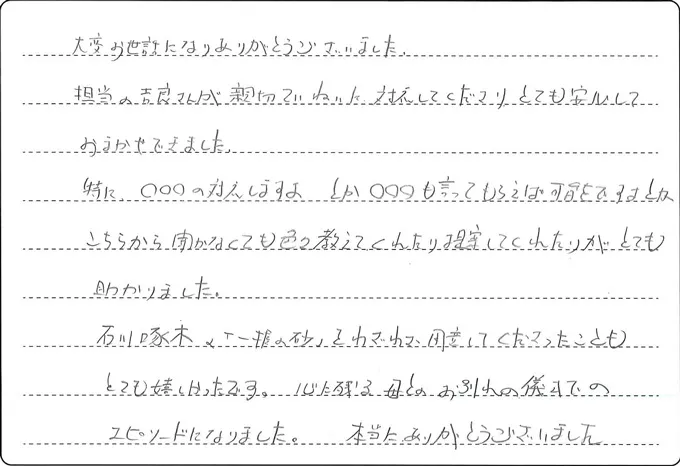 大変お世話になりありがとうございました。
担当の吉良さんが親切ていねいに対応してくださりとても安心して
おまかせできました。
特に、〇〇〇の対応しますよ とか〇〇〇も言ってもらえば可能ですよとか
こちらから聞かなくても色々教えてくれたり提案してくれたりがとても
助かりました。
石川啄木の「一握の砂」それぞれで用意してくださったことも
とても嬉しかったです。心に残る母とのお別れの儀式での
エピソードになりました。 本当にありがとうございました